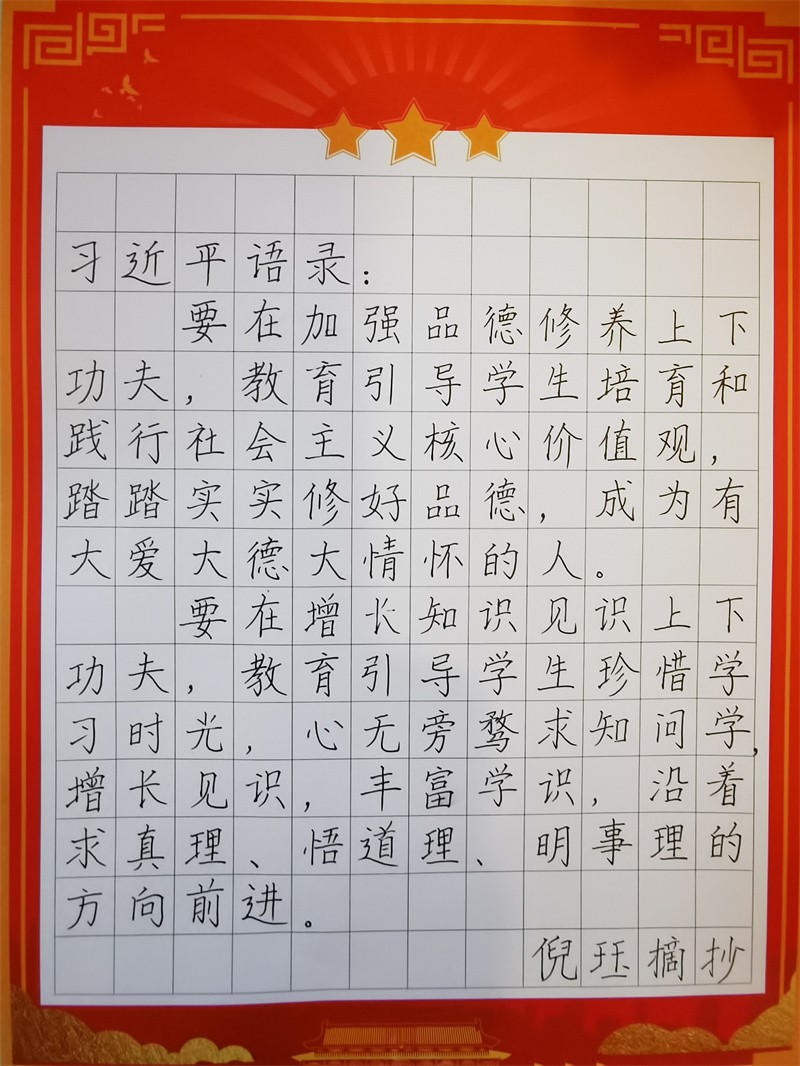 习近平语录：
要在加强品德修养上下
功夫，教育引导学生培育和
践行社会主义核心价值观，
踏踏实实修好品德，成为有
大爱大德大情怀的人。
要在增长知识见识上下
功夫，教育引导学生珍惜学
习时光，心无旁骛求知问学，
增长见识，丰富学识，沿着
求真理、悟道理、明事理的
方向前进。
倪珏摘抄